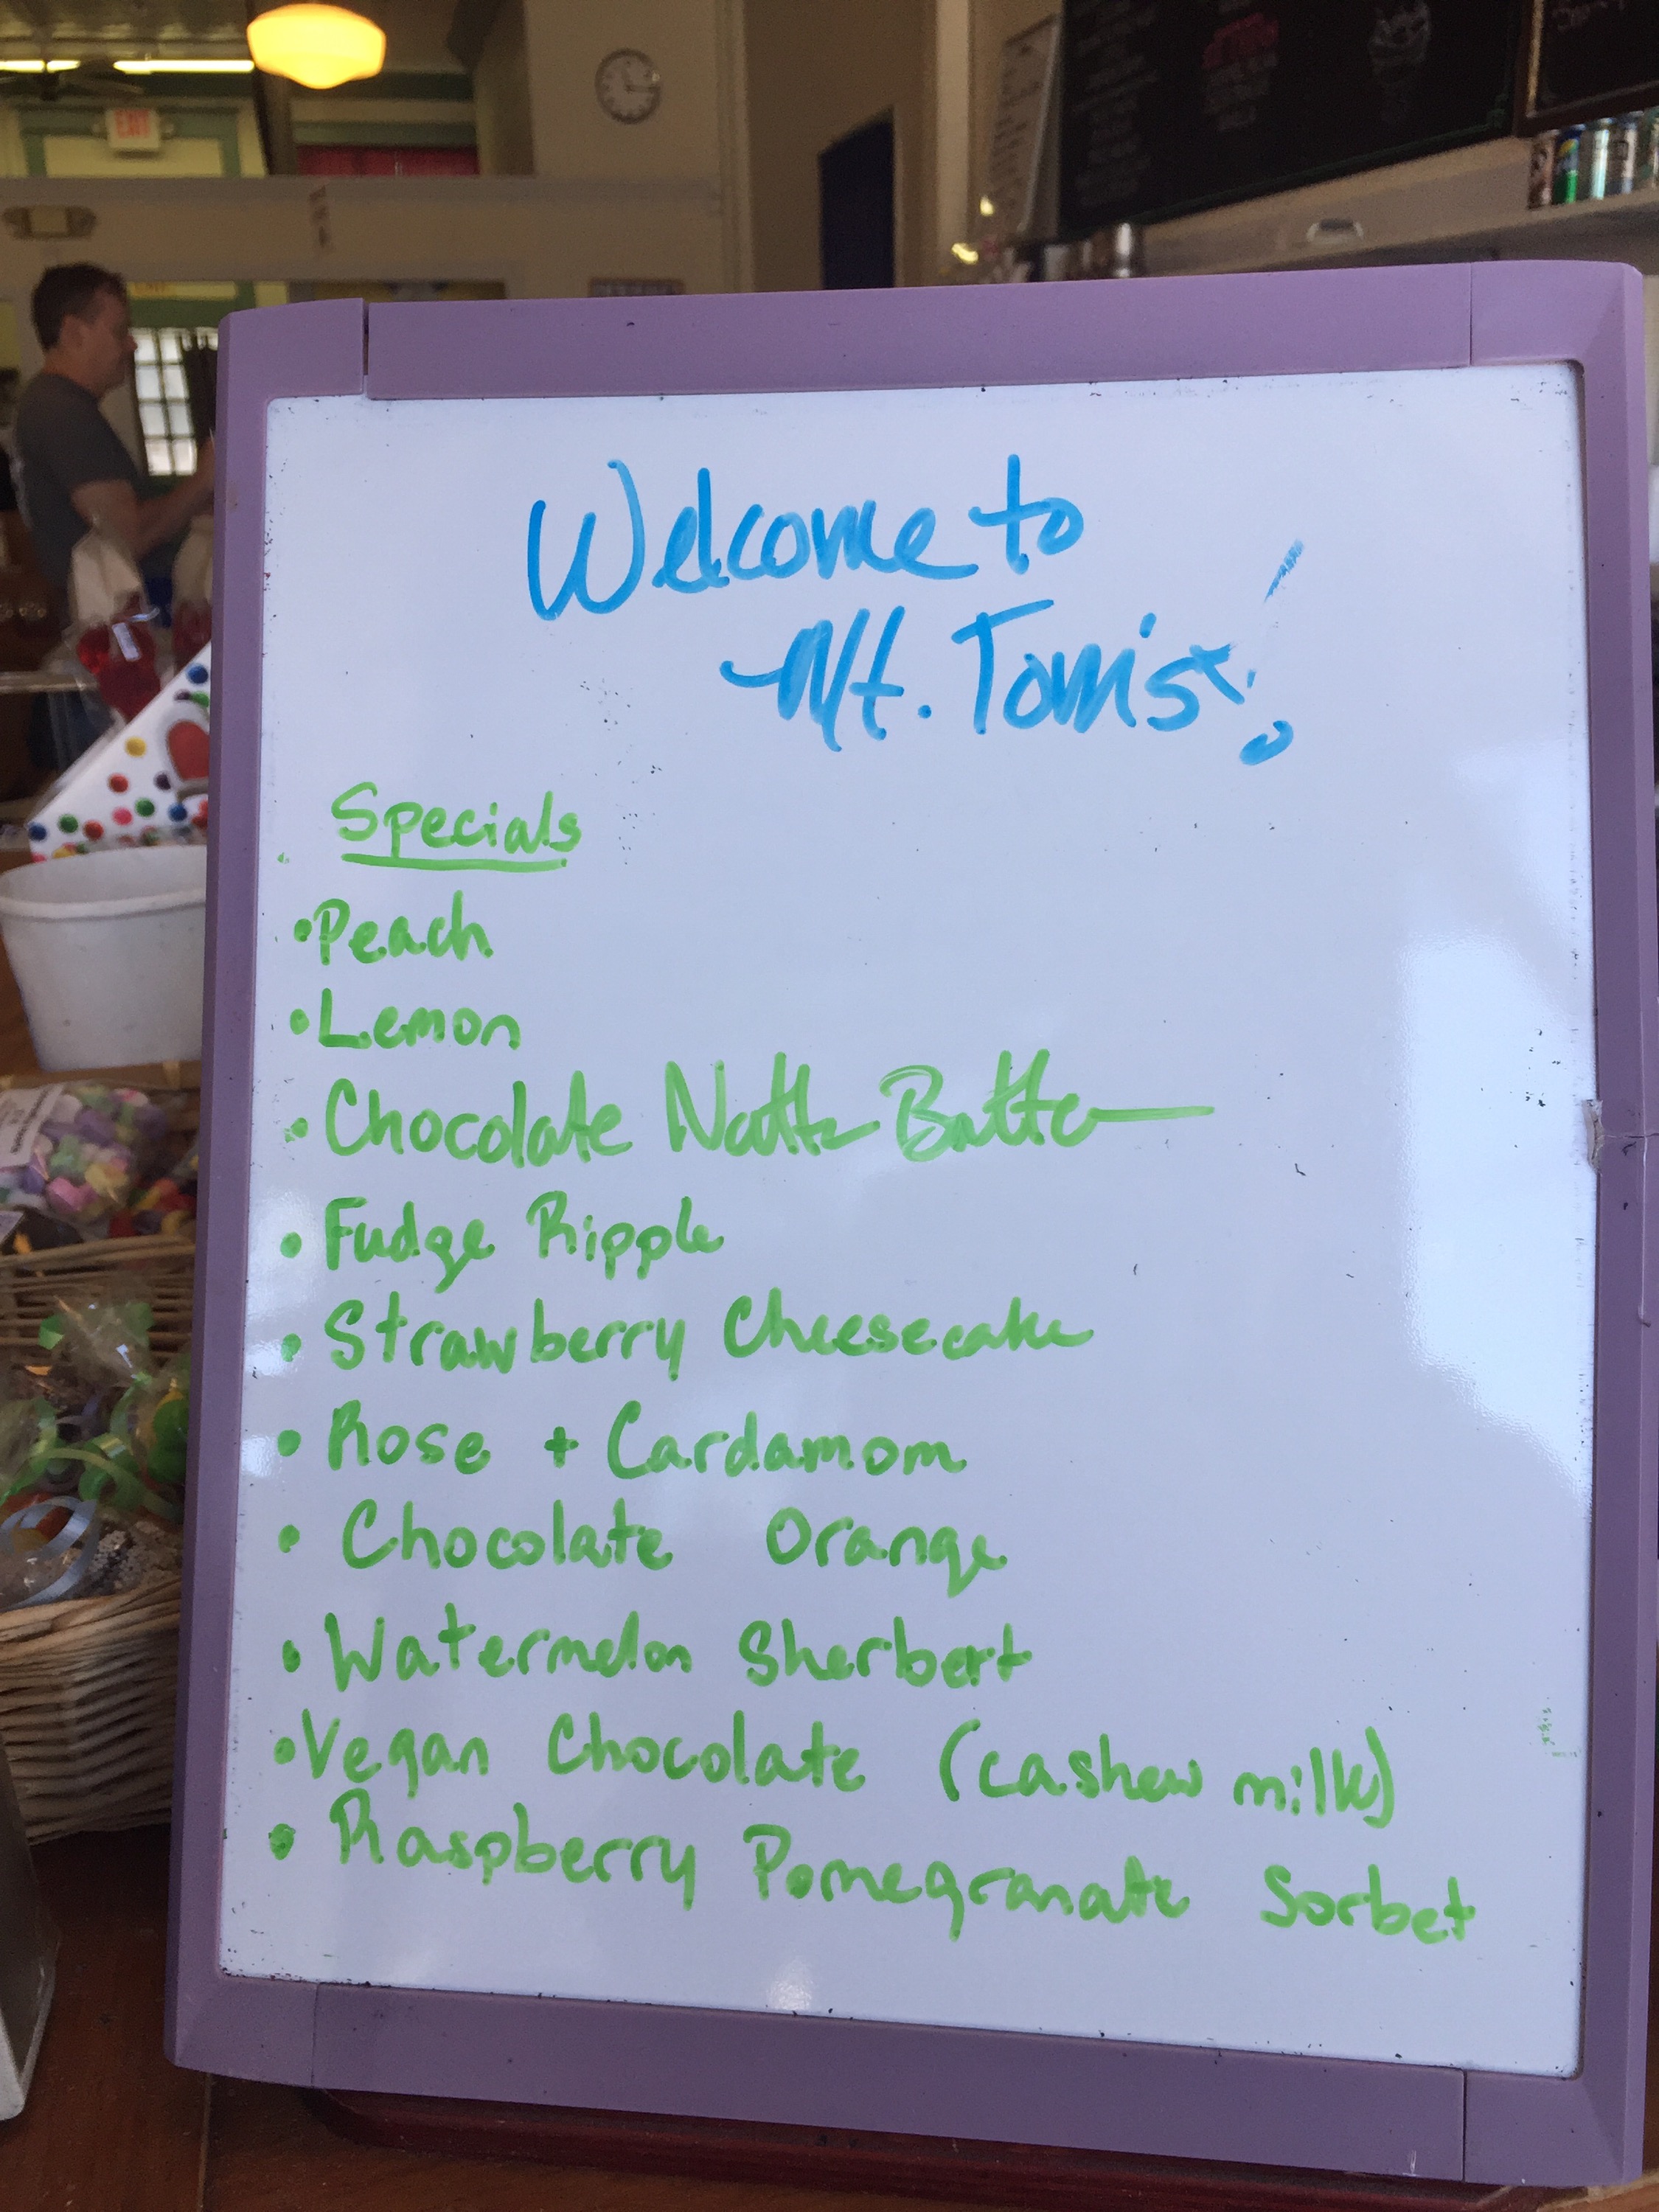 EXIT
Welcome to
Mt. Tom's!
Specials
• Peach
• Lemon
• Chocolate Nutter Butter
• Fudge Ripple
• Strawberry Cheesecake
• Rose + Cardamom
• Chocolate Orange
• Watermelon Sherbert
• Vegan Chocolate (cashew milk)
• Raspberry Pomegranate Sorbet